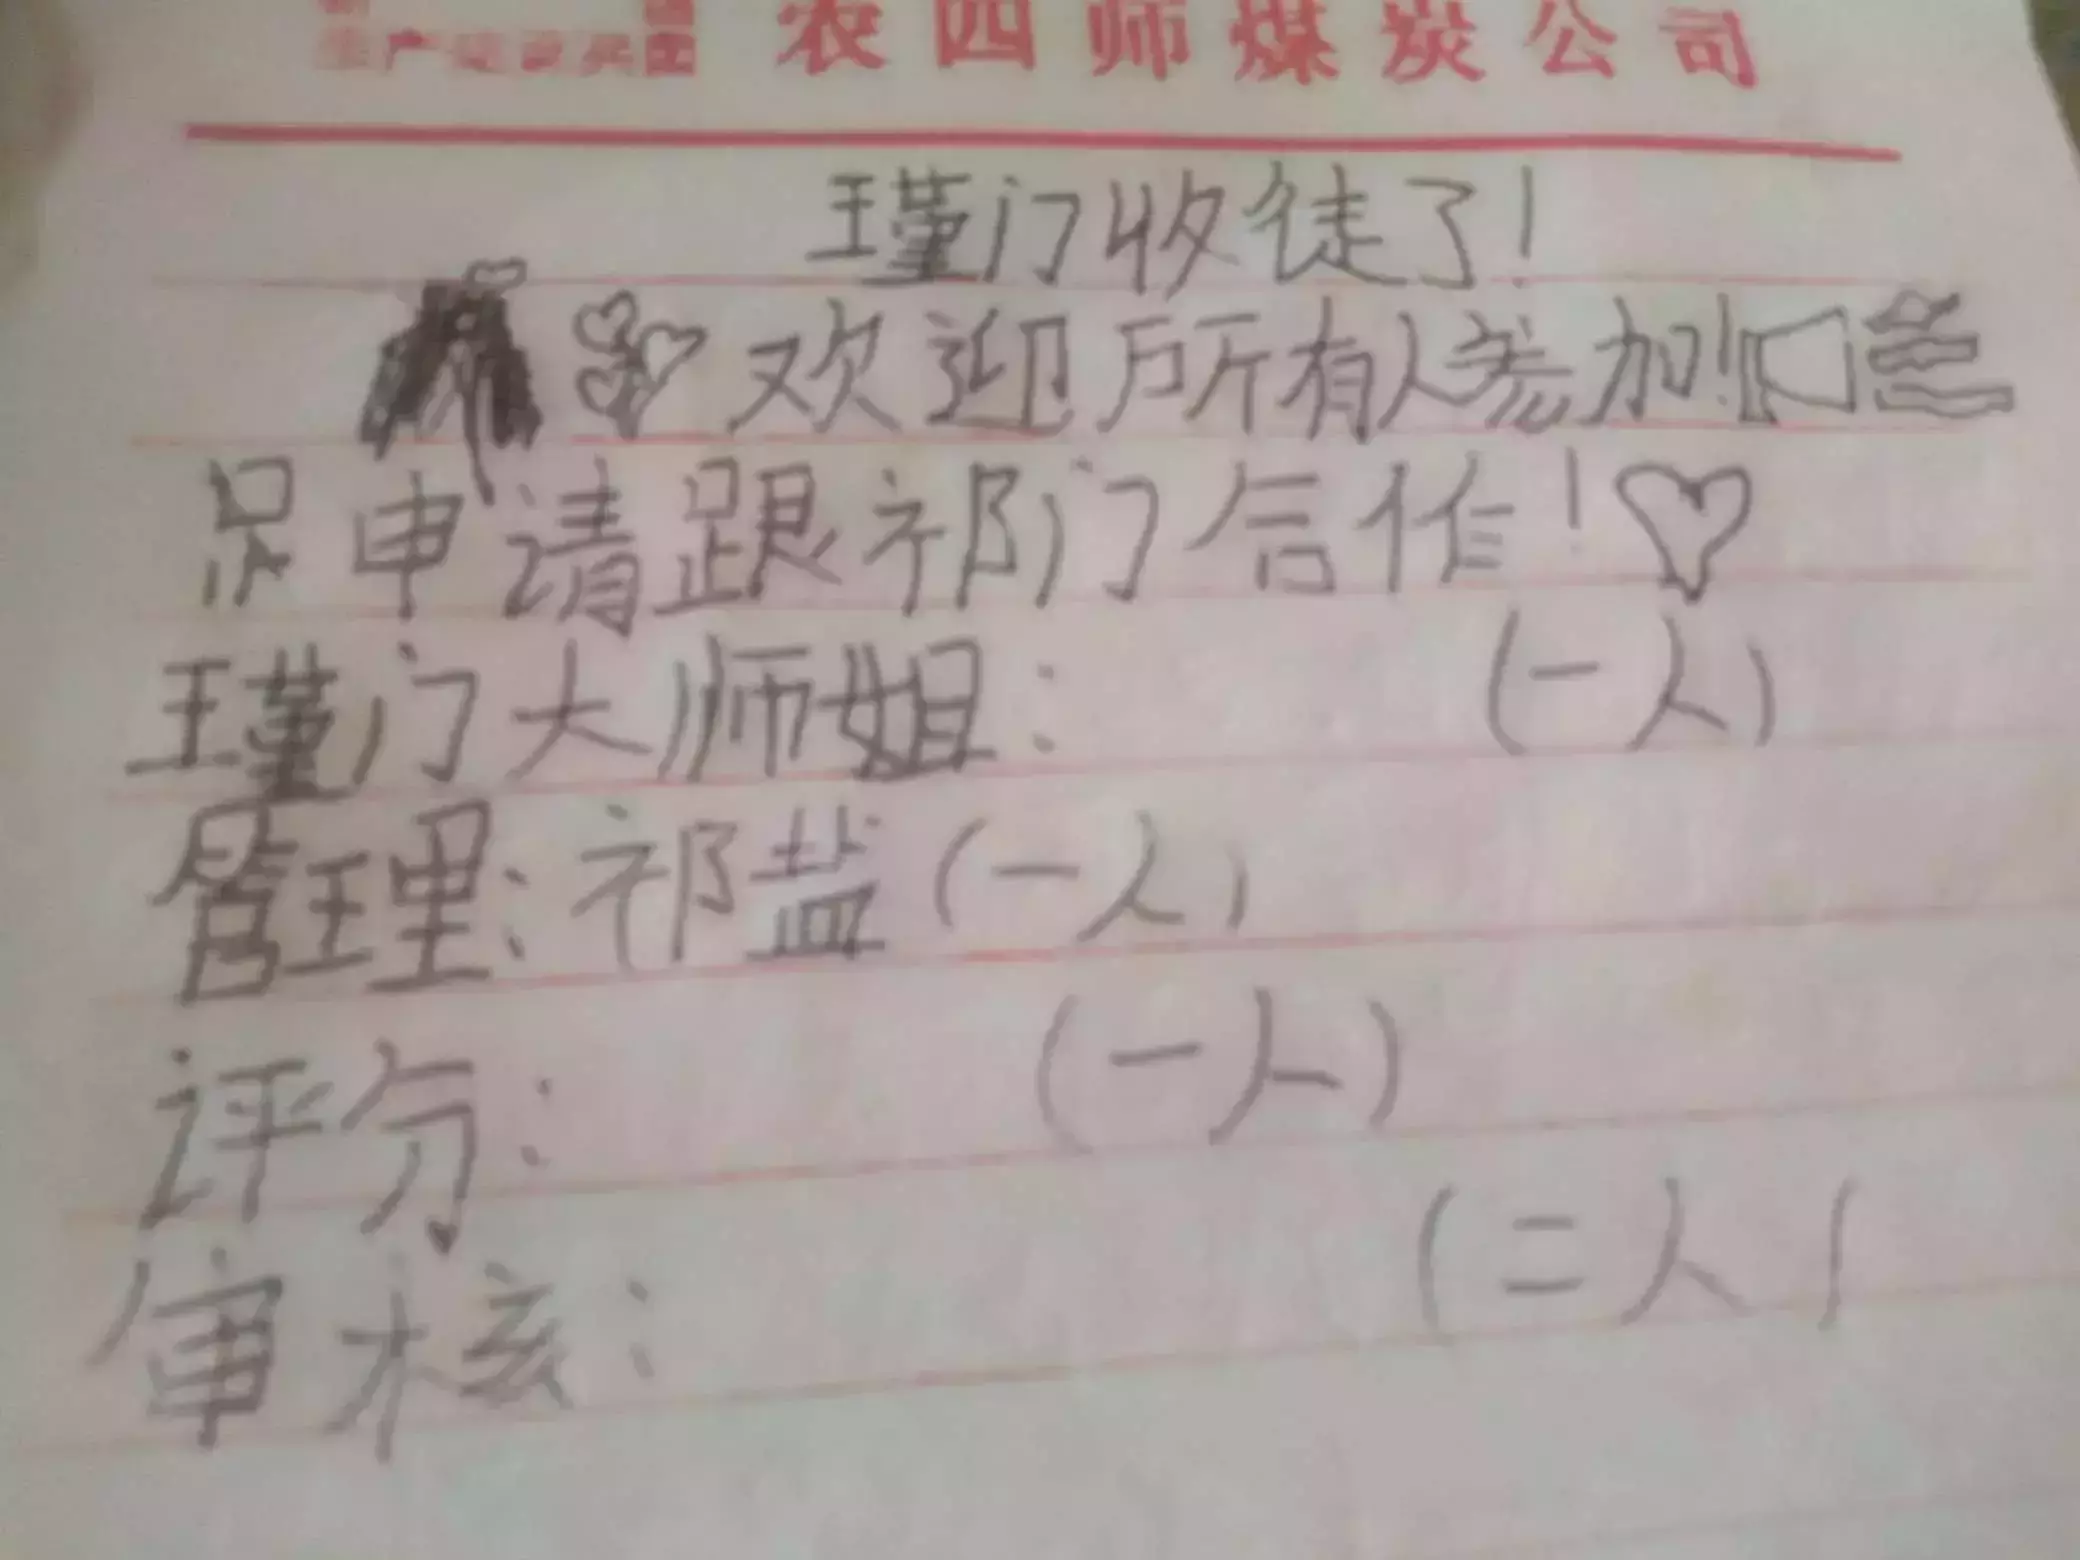 生产建设兵团 农四师煤炭公司
瑾门收徒了!
欢迎所有人参加!
申请跟祁门合作!
瑾门大师姐: (一人)
管理: 祁盐 (一人)
评分: (一人)
审核: (二人)